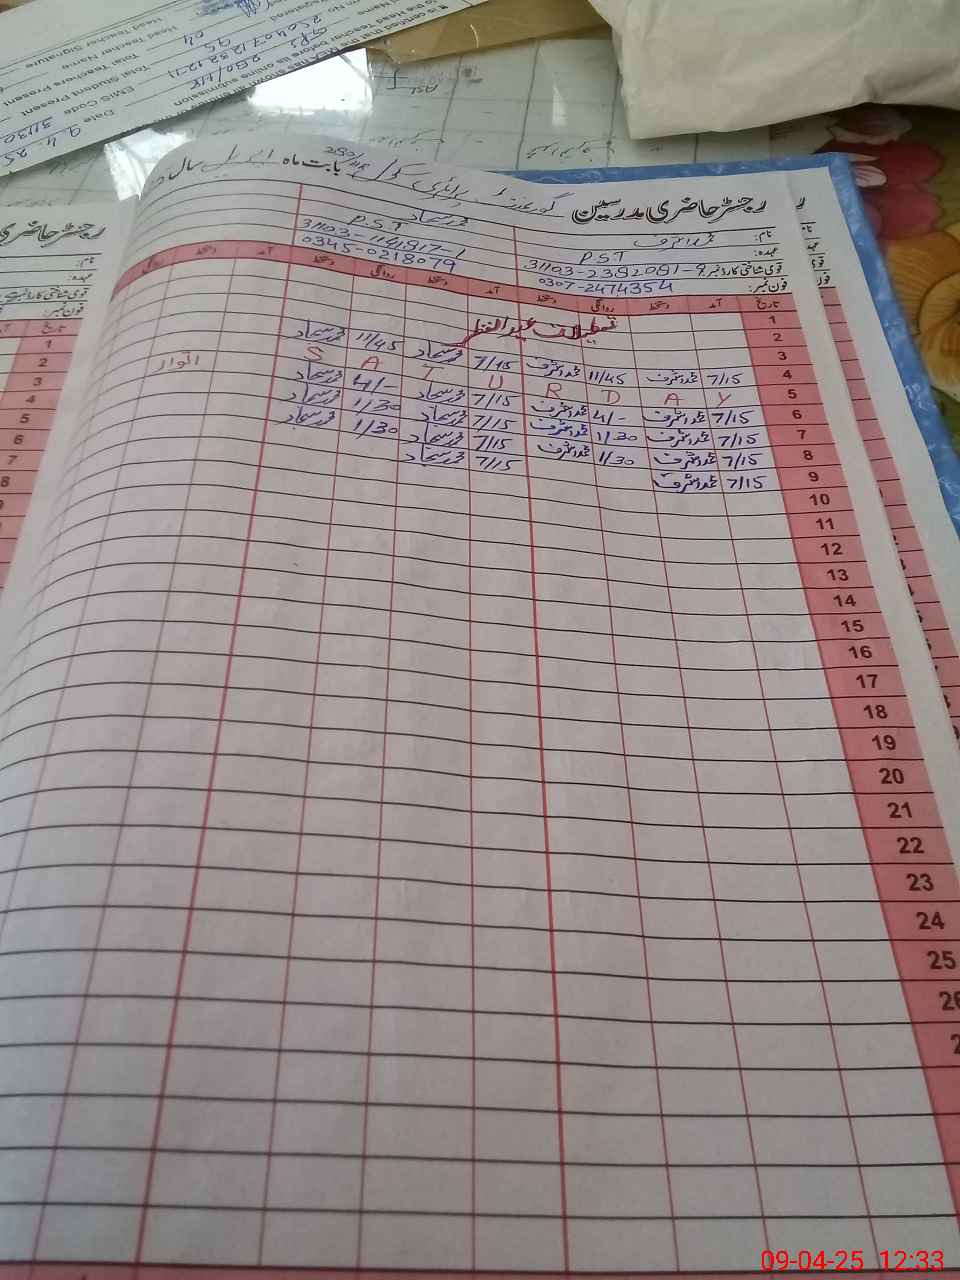 رجسٹر حاضری مدرسین گورنمنٹ پرائمری سکول 280/HR بابت ماہ اپریل سال
نام: محمد اشرف محمد سجاد
عہدہ: PST PST
قومی شناختی کارڈ نمبر: 31103-2382081-9 31103-1141817-1
فون نمبر: 0307-2474354 0345-0218079
تاریخ آمد دستخط روانگی دستخط آمد دستخط روانگی دستخط آمد دستخط روانگی
1
2 تعطیلات عیدالفطر
3
4 7/15 محمد اشرف 11/45 محمد اشرف 7/15 محمد سجاد 11/45 محمد سجاد
5 S A T U R D A Y
6 7/15 محمد اشرف 4/- محمد اشرف 7/15 محمد سجاد 4/- محمد سجاد
اتوار
7 7/15 محمد اشرف 1/30 محمد اشرف 7/15 محمد سجاد 1/30 محمد سجاد
8 7/15 محمد اشرف 1/30 محمد اشرف 7/15 محمد سجاد 1/30 محمد سجاد
9 7/15 محمد اشرف 7/15 محمد سجاد
10
11
12
13
14
15
16
17
18
19
20
21
22
23
24
25
26
رجسٹر حاضری
نام:
عہدہ:
فون نمبر:
تاریخ
1
2
3
4
5
6
7
8
Head Teacher Signature
Head Teacher Name
Total Teachers Present 04
Total Student Present 95
EMIS Code 31130
Date 9.4.25
09-04-25 12:33